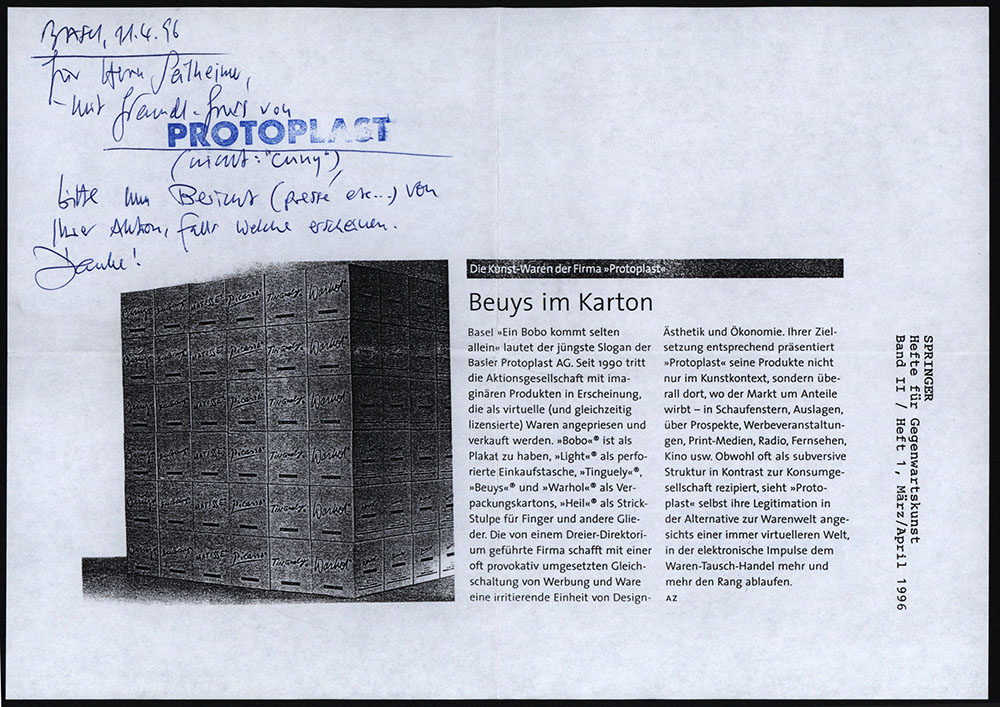 Basel, 11.4.96
für Herrn
mit freundl. Gruss von
PROTOPLAST
(nicht: "Cuny")
bitte um Bericht (presse etc...) von
Ihrer Aktion, falls welche erscheinen.
Danke!
MATISSE Picasso Tinguely Warhol
Die Kunst-Waren der Firma »Protoplast«
Beuys im Karton
Basel »Ein Bobo kommt selten
allein« lautet der jüngste Slogan der
Basler Protoplast AG. Seit 1990 tritt
die Aktionsgesellschaft mit ima-
ginären Produkten in Erscheinung,
die als virtuelle (und gleichzeitig
lizensierte) Waren angepriesen und
verkauft werden. »Bobo«® ist als
Plakat zu haben, »Light«® als perfo-
rierte Einkaufstasche, »Tinguely«®,
»Beuys«® und »Warhol«® als Ver-
packungskartons, »Heil«® als Strick-
Stulpe für Finger und andere Glie-
der. Die von einem Dreier-Direktori-
um geführte Firma schafft mit einer
oft provokativ umgesetzten Gleich-
schaltung von Werbung und Ware
eine irritierende Einheit von Design-
Ästhetik und Ökonomie. Ihrer Ziel-
setzung entsprechend präsentiert
»Protoplast« seine Produkte nicht
nur im Kunstkontext, sondern übe-
rall dort, wo der Markt um Anteile
wirbt – in Schaufenstern, Auslagen,
über Prospekte, Werbeveranstaltun-
gen, Print-Medien, Radio, Fernsehen,
Kino usw. Obwohl oft als subversive
Struktur in Kontrast zur Konsumge-
sellschaft rezipiert, sieht »Proto-
plast« selbst ihre Legitimation in
der Alternative zur Warenwelt ange-
sichts einer immer virtuelleren Welt,
in der elektronische Impulse dem
Waren-Tausch-Handel mehr und
mehr den Rang ablaufen.
AZ
SPRINGER
Hefte für Gegenwartskunst
Band II / Heft 1, März/April 1996